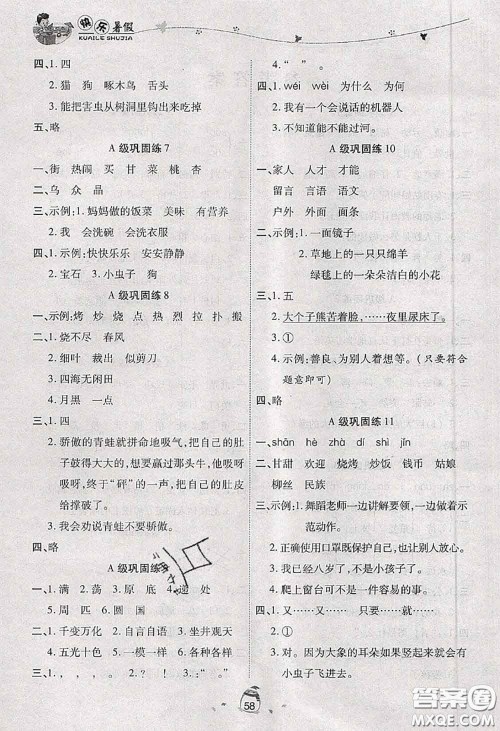 快乐暑假
KUAILE SHUJIA
四、1. 四
2. 猫 狗 啄木鸟 舌头
3. 能把害虫从树洞里钩出来吃掉
五、略
A 级巩固练 7
一、街 热闹 买 甘菜 桃 杏
二、鸟 众 晶
三、示例:1. 妈妈做的饭菜 美味 有营养
2. 我 会洗碗 会洗衣服
四、1. 示例:快快乐乐 安安静静
2. 宝石 3. 小虫子 狗
A 级巩固练 8
一、示例:烤 炒 烧 点 热 烈 拉 扑 搬
二、1. 烧不尽 春风
2. 细叶 裁出 似剪刀
3. 四海无闲田
4. 月黑 一点
三、1. 四
2. 骄傲的青蛙就拼命地吸气,把自己的肚皮鼓得大大的,想要赢过那头牛,他吸呀吸呀,终于“砰”的一声,把自己的肚皮给撑破了。
3. 我会劝说青蛙不要骄傲。
四、略
A 级巩固练 9
一、1. 满 2. 荡 3. 原 底 4. 迎 处
5. 周 匹 6. 圆 国
二、1. 千变万化 2. 自言自语 3. 坐井观天
4. 五光十色 5. 一模一样 6. 多种多样
三、1. , 。 2. ? ! 3. : “ 。”
四、1. wéi wèi 为什么 为何
2. 我有一个会说话的机器人
3. 不知道能不能过河。
A 级巩固练 10
一、家人 人才 才能
留言 言语 语文
户外 外面 面条
二、示例:1. 一面镜子
2. 草地上的一只只绵羊
绿毯上的一朵朵洁白的小花
三、1. 五
2. 大个子熊苦着脸,……夜里尿床了。
3. ①
4. 示例:善良、为别人着想等。(只要符合
题意即可)
四、略
A 级巩固练 11
一、shān hè zhà dí shì jīn
二、甘甜 欢迎 烧烤 炒饭 钱币 姑娘
柳丝 民族
三、示例:1. 舞蹈老师一边讲解要领,一边做示
范动作。
2. 正确使用口罩既保护自己,也让别人放心。
3. 我已经八岁了,不是小孩子了。
4. 爬上窗台可不是一件好事情。
四、1. 又……又…… 只要……就……
2. ①
3. 因为:对大象的耳朵如果竖起来就会有
小虫子飞进去。
58
答案圈
MXQE.COM